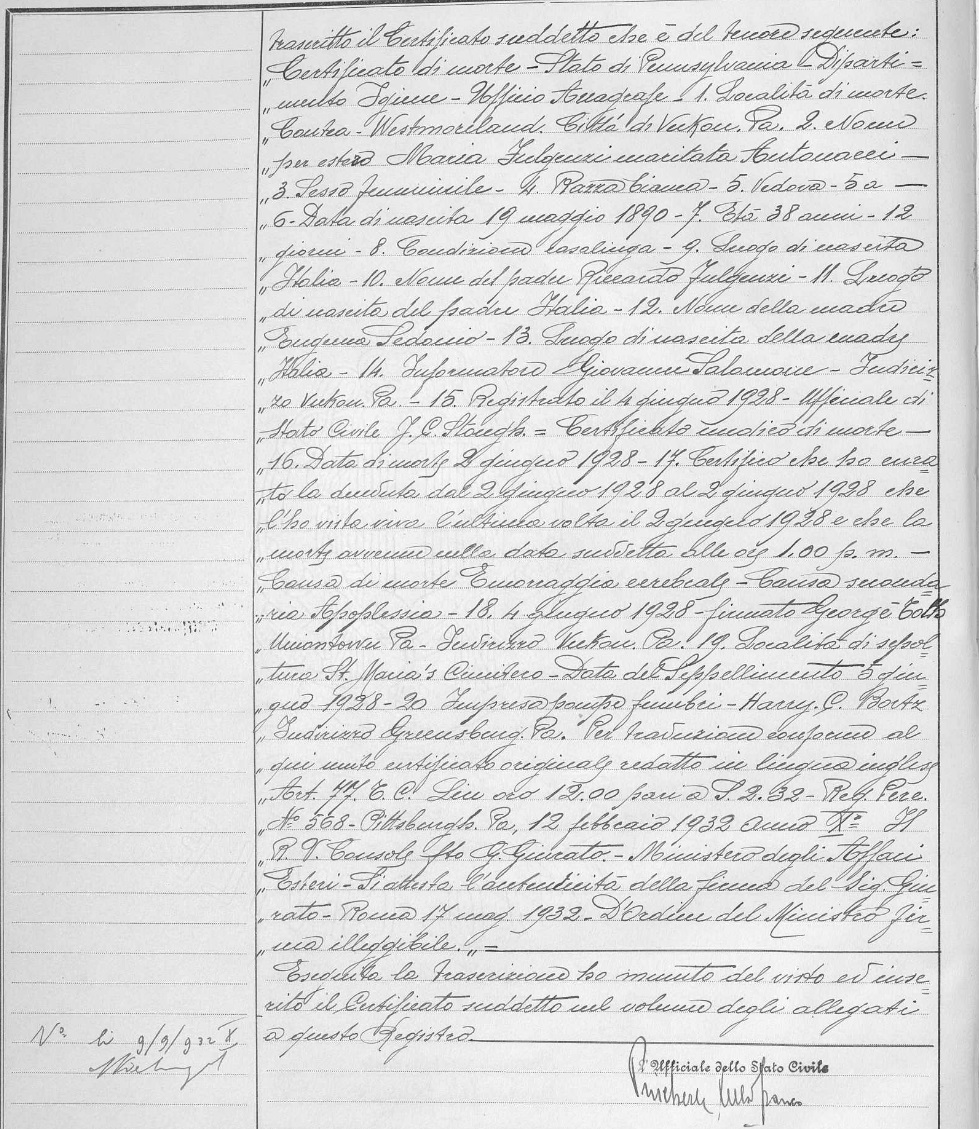 trascritto il Certificato suddetto che è del tenore seguente:
„Certificato di morte - Stato di Pennsylvania - Diparti=
„mento Igiene - Ufficio Anagrafe - 1. Località di morte.
„Contea - Westmoreland. Città di Yukon. Pa. 2. Nome
„per estero Maria Fulgenzi maritata Antonacci —
„3. Sesso femminile - 4. Razza bianca - 5. Vedova - 5a —
„6. Data di nascita 19 maggio 1890 - 7. Età 38 anni - 12
„giorni - 8. Condizione casalinga - 9. Luogo di nascita
„Italia - 10. Nome del padre Riccardo Fulgenzi - 11. Luogo
„di nascita del padre Italia - 12. Nome della madre
„Eugenia - 13. Luogo di nascita della madre
„Italia - 14. Informatore Giovanni Salamone - Indiriz=
„zo Yukon. Pa. - 15. Registrato il 4 giugno 1928 - Ufficiale di
„Stato Civile J. C. = Certificato medico di morte —
„16. Data di morte 2 giugno 1928 - 17. Certifico che ho cura=
„to la deceduta dal 2 giugno 1928 al 2 giugno 1928 che
„l'ho vista viva l'ultima volta il 2 giugno 1928 e che la
„morte avvenne nella data suddetta alle ore 1.00 p. m. —
„Causa di morte Emorraggia cerebrale - Causa seconda=
„ria Apoplessia - 18. 4 giugno 1928 - firmato George
„Uniontown Pa - Indirizzo Yukon. Pa. 19. Località di sepol=
„tura St. Maria's Cimitero - Data del Seppellimento 5 giu=
„gno 1928 - 20 Impresa pompe funebri - Harry. C. Bortz
„Indirizzo Greensburg. Pa. Per traduzione conforme al
„qui unito certificato originale redatto in lingua inglese
„Art. 77. T. C. Lire oro 12.00 pari a $ 2.32 - Reg. Perc.
„N° 568 - Pittsburgh. Pa, 12 febbraio 1932 anno X° Il
„R. V. Console fto G. Giurato. - Ministero degli Affari
„Esteri - Si attesta l'autenticità della firma del Sig. Giu=
„rato - Roma 17 mag. 1932 - D'Ordine del Ministro fir=
„ma illeggibile. „ =
Eseguita la trascrizione ho munito del visto ed inse=
rito il Certificato suddetto nel volume degli allegati
a questo Registro.
V° li 9/9/932 X
L'Ufficiale dello Stato Civile